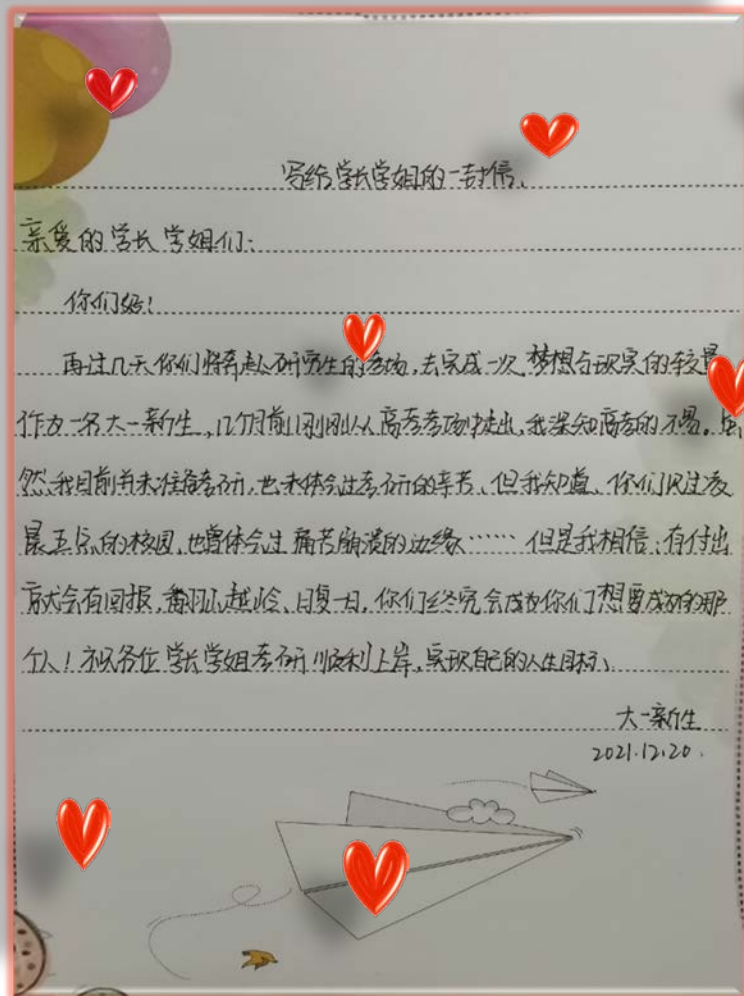 写给学长学姐的一封信、
亲爱的学长学姐们：
你们好！
再过几天你们将奔赴研究生的考场，去完成一次梦想与现实的较量
作为一名大一新生，几个月前刚刚从高考考场中走出，我深知高考的不易。虽
然、我目前并未准备考研，也未体会过考研的辛苦、但我知道、你们见过凌
晨五点的校园，也曾体会过痛苦崩溃的边缘……但是我相信：有付出
就会有回报，翻山越岭、日复一日，你们终究会成为你们想要成为的那
个人！祝各位学长学姐考研顺利上岸，实现自己的人生目标、
大一新生
2021.12.20.